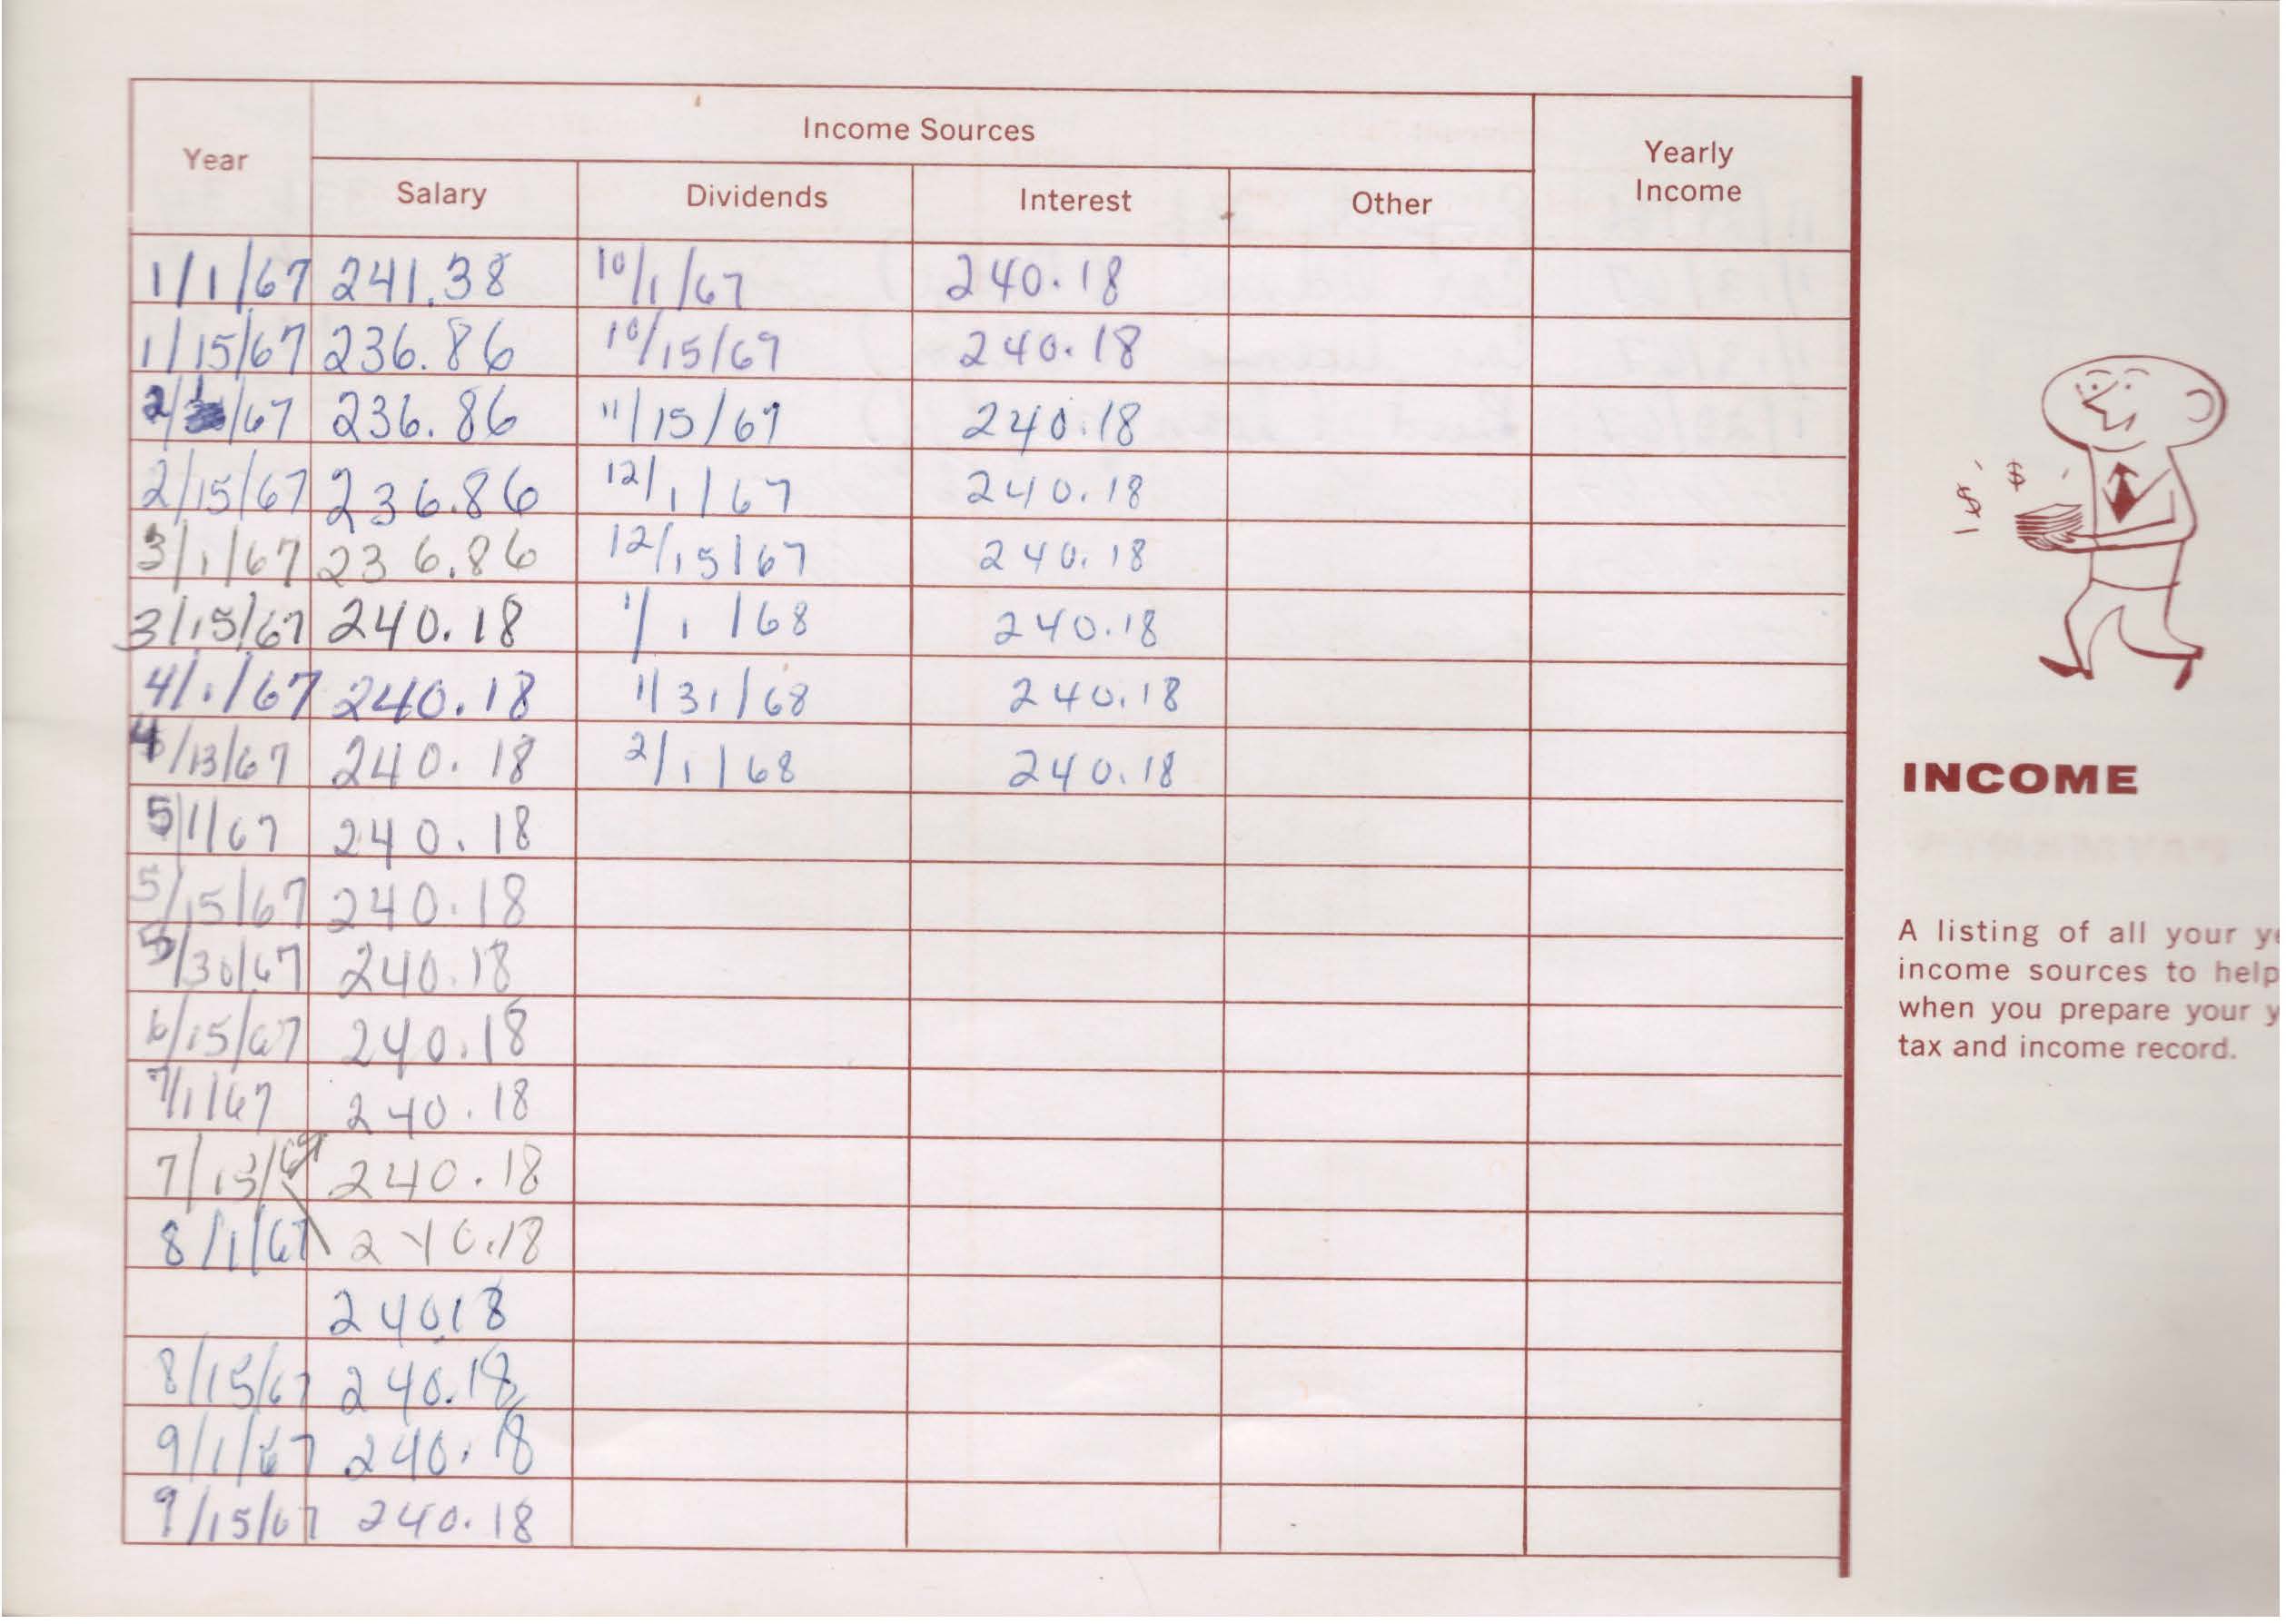 Year
Income Sources
Yearly
Income
Salary Dividends Interest Other
1/1/67 241.38 10/1/67 240.18
1/15/67 236.86 10/15/67 240.18
2/1/67 236.86 11/15/67 240.18
2/15/67 236.86 12/1/67 240.18
3/1/67 236.86 12/15/67 240.18
3/15/67 240.18 1/1/68 240.18
4/1/67 240.18 1/31/68 240.18
4/13/67 240.18 2/1/68 240.18
5/1/67 240.18
5/15/67 240.18
5/30/67 240.18
6/15/67 240.18
7/1/67 240.18
7/13/67 240.18
8/1/67 240.18
240.18
8/15/67 240.18
9/1/67 240.18
9/15/67 240.18
$ $
INCOME
A listing of all your
income sources to help
when you prepare your y
tax and income record.